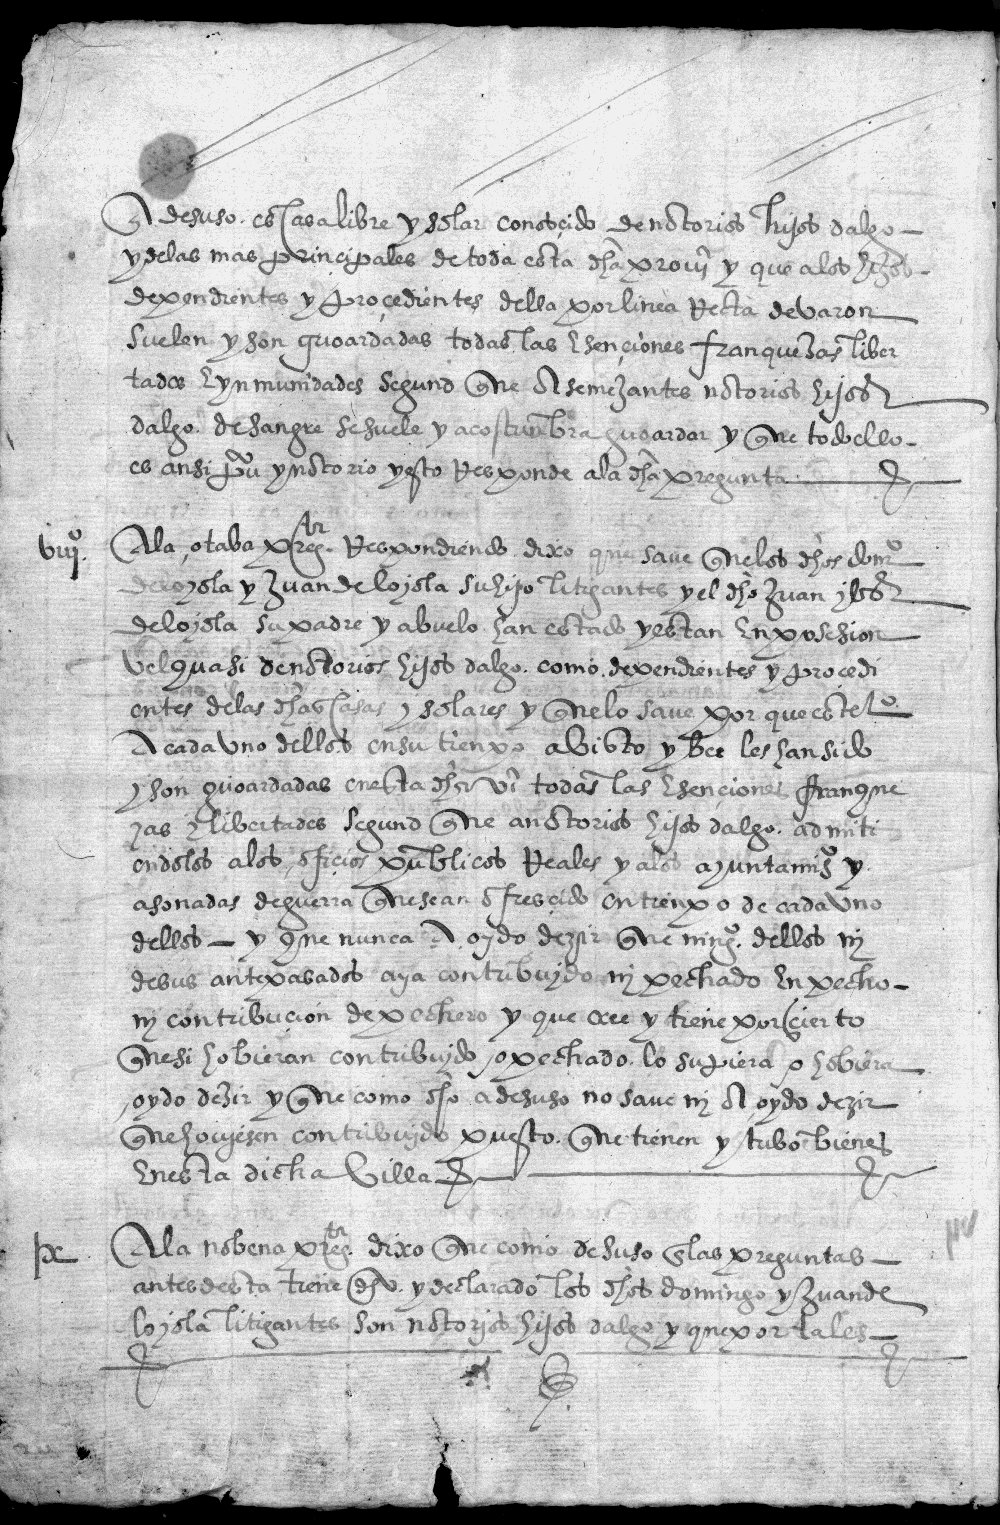 Adesuso. es casa libre y solar conosçido de notorios hijos dalgo
y delas mas prinçipales de toda esta dha provi y que alos hijos
dependientes y proçedientes della por linea Recta de varon
suelen y son guoardadas todas las Esençiones franquezas liber
tades E ynmunidades segund que A semejantes notorios hijos
dalgo. de sangre se suele y acostunbra guoardar y que todo ello
es ansi pu y notorio y esto Responde ala dha pregunta
viijº. Ala otaba preg. Respondiendo dixo que save que los dhos domº
de loyola y Juan de loyola su hijo litigantes y el dho Juan
de loyola su padre y abuelo han estado y estan En posesion
vel quasi de notorios hijos dalgo. como dependientes y proçedi
entes delas dhas casas y solares y que lo save por que este tº
A cada vno dellos en su tienpo a visto y bee les han sido
y son guoardadas en esta dha vi todas las Esençiones franque
zas E libertades segund que a notorios hijos dalgo. admiti
endolos alos ofiçios publicos Reales y alos ayuntamios y
asonadas de guerra que se an ofresçido en tienpo de cada vno
dellos y que nunca A oydo dezir que ningº. dellos nj
de sus antepasados aya contribuydo nj pechado En pecho
nj contribuçion de pechero y que cree y tiene por çierto
que si hobieran contribuydo o pechado. lo supiera o hobiera
oydo dezir y que como dho a de suso no save nj A oydo dezir
que hoviesen contribuydo puesto. que tienen y tubo bienes
En esta dicha Villa
ix Ala nobena preg. dixo que como de suso En las preguntas
antes desta tiene dho. y declarado los dhos domingo y Juan de
loyola litigantes son notorios hijos dalgo y que por tales